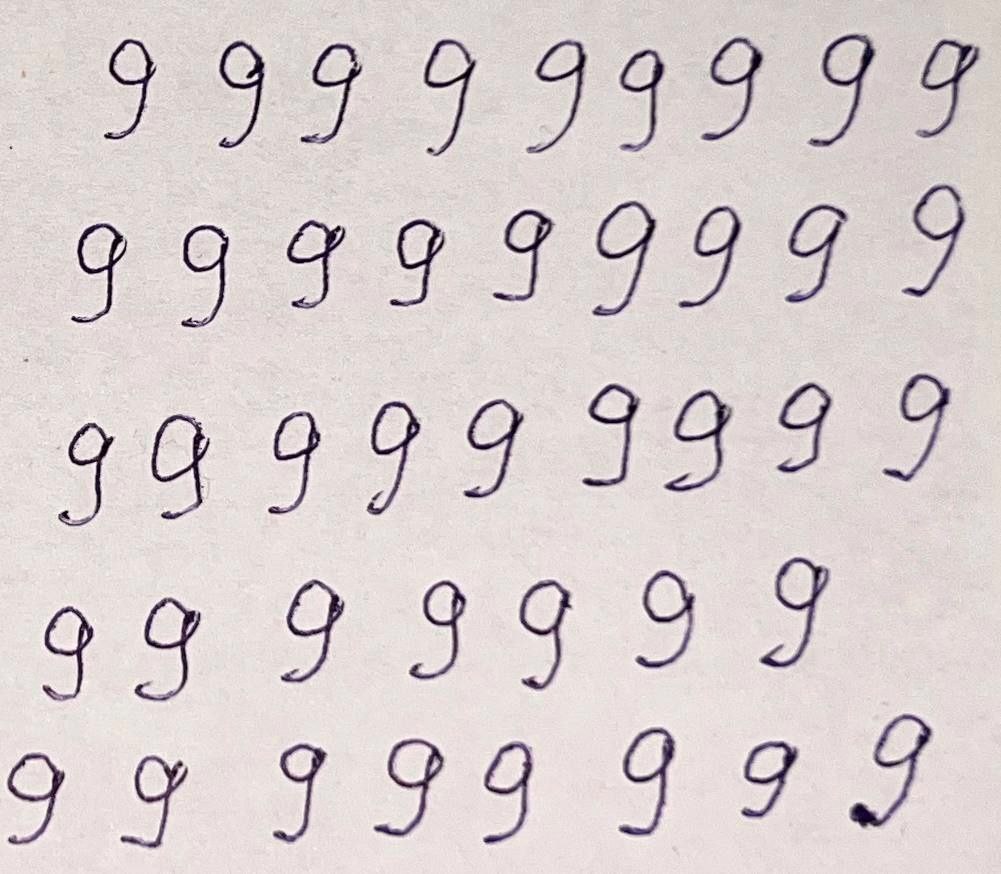 9 9 9 9 9 9 9 9 9
9 9 9 9 9 9 9 9 9
9 9 9 9 9 9 9 9 9
9 9 9 9 9 9 9
9 9 9 9 9 9 9 9